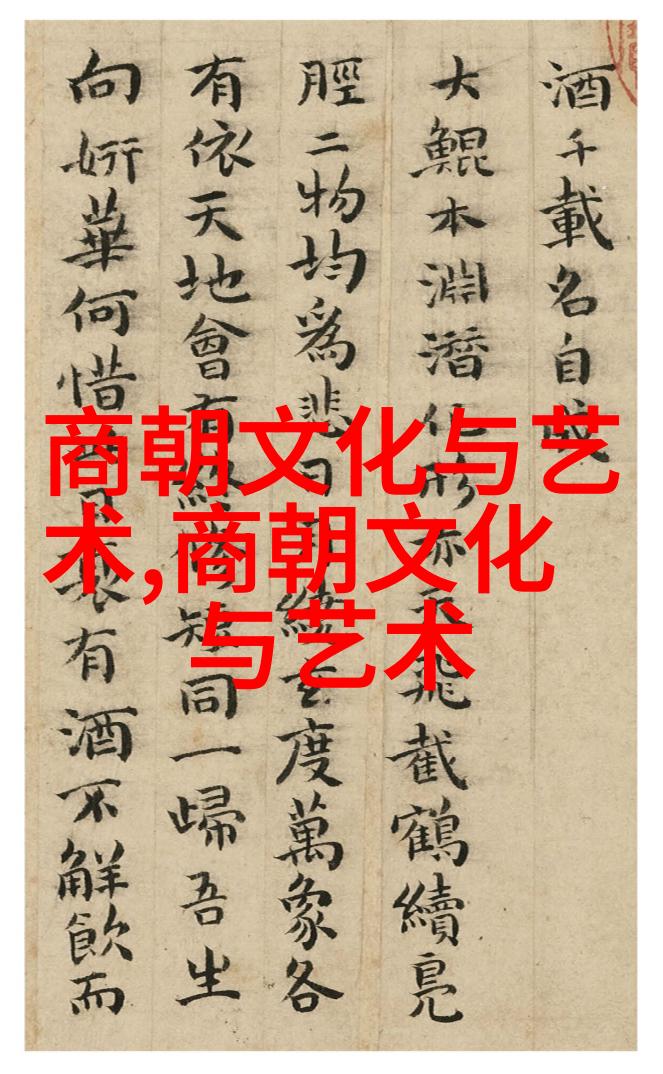 酒千載名自
大鯤本淵潛化形亦天飛截鶴續鳧
脛二物均爲悲日月玄度萬象各
有依天地會有終脩短同一歸吾生
向妍華何惜有酒不解飲而
商朝文化与艺
术,商朝文化
与艺术